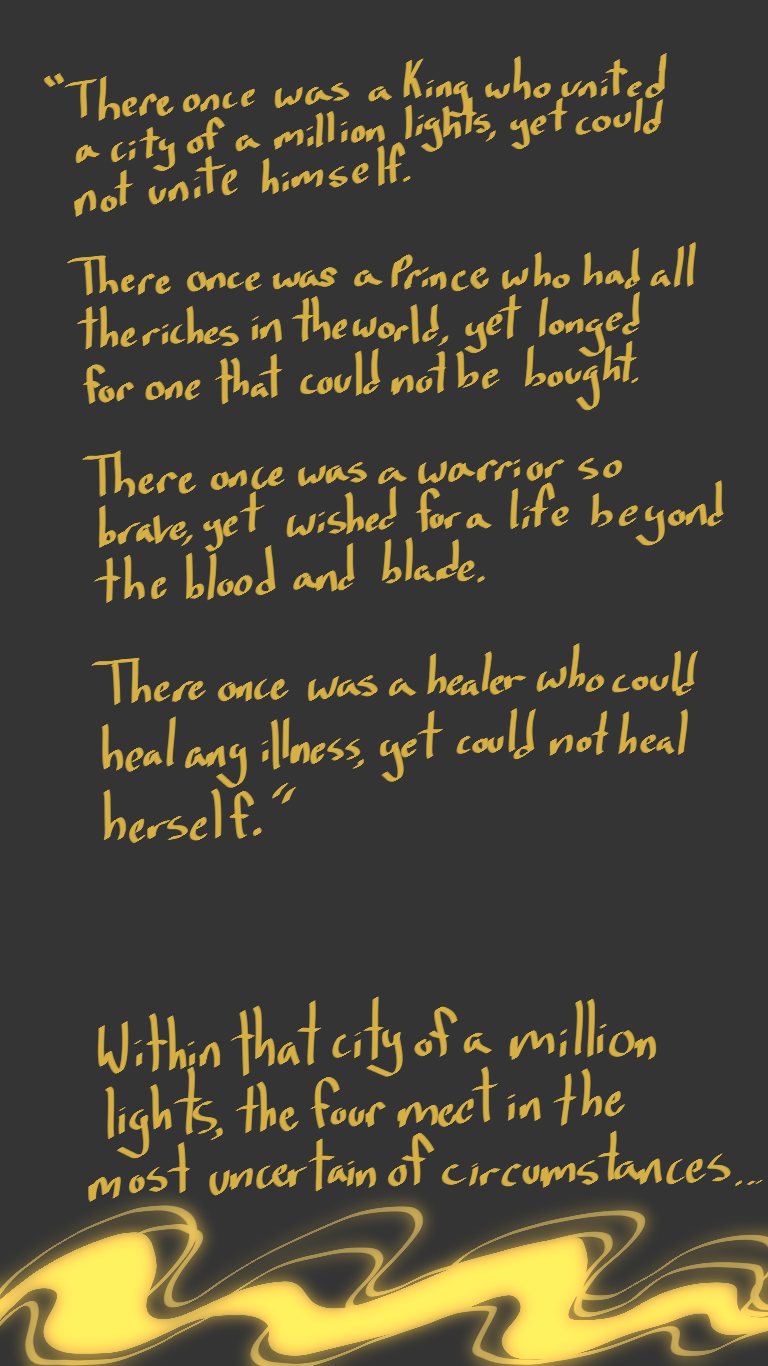 “There once was a King who united
a city of a million lights, yet could
not unite himself.
There once was a Prince who had all
the riches in the world, yet longed
for one that could not be bought.
There once was a warrior so
brave, yet wished for a life beyond
the blood and blade.
There once was a healer who could
heal any illness, yet could not heal
herself.”
Within that city of a million
lights, the four meet in the
most uncertain of circumstances...